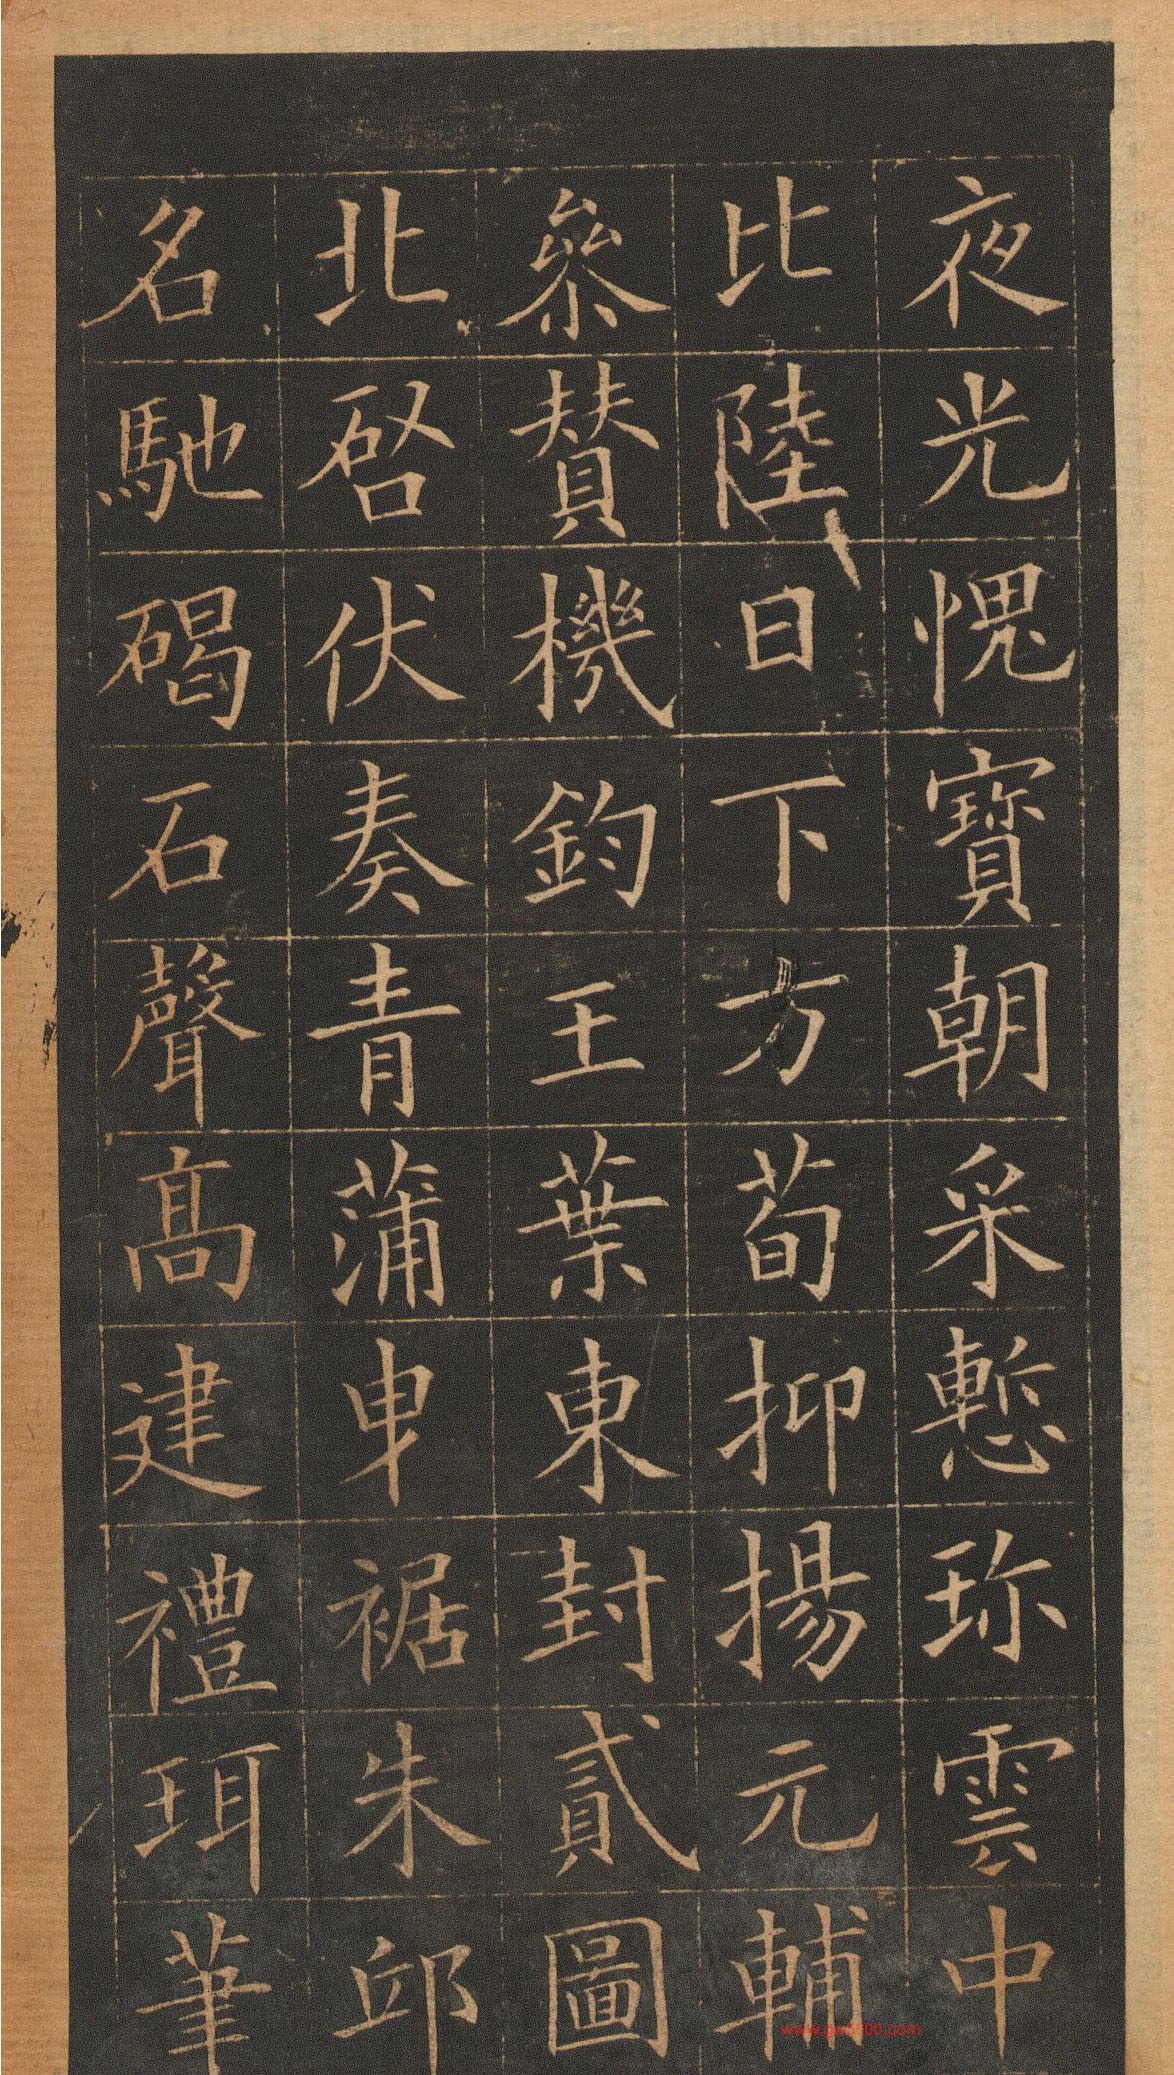 夜光愧寶朝采慙珎雲中
比陸日下方荀抑揚元輔
叅賛機鈞王葉東封貳圖
北啓伏奏青蒲曳裾朱邱
名馳碣石聲高建禮珥筆
www.gw5000.com